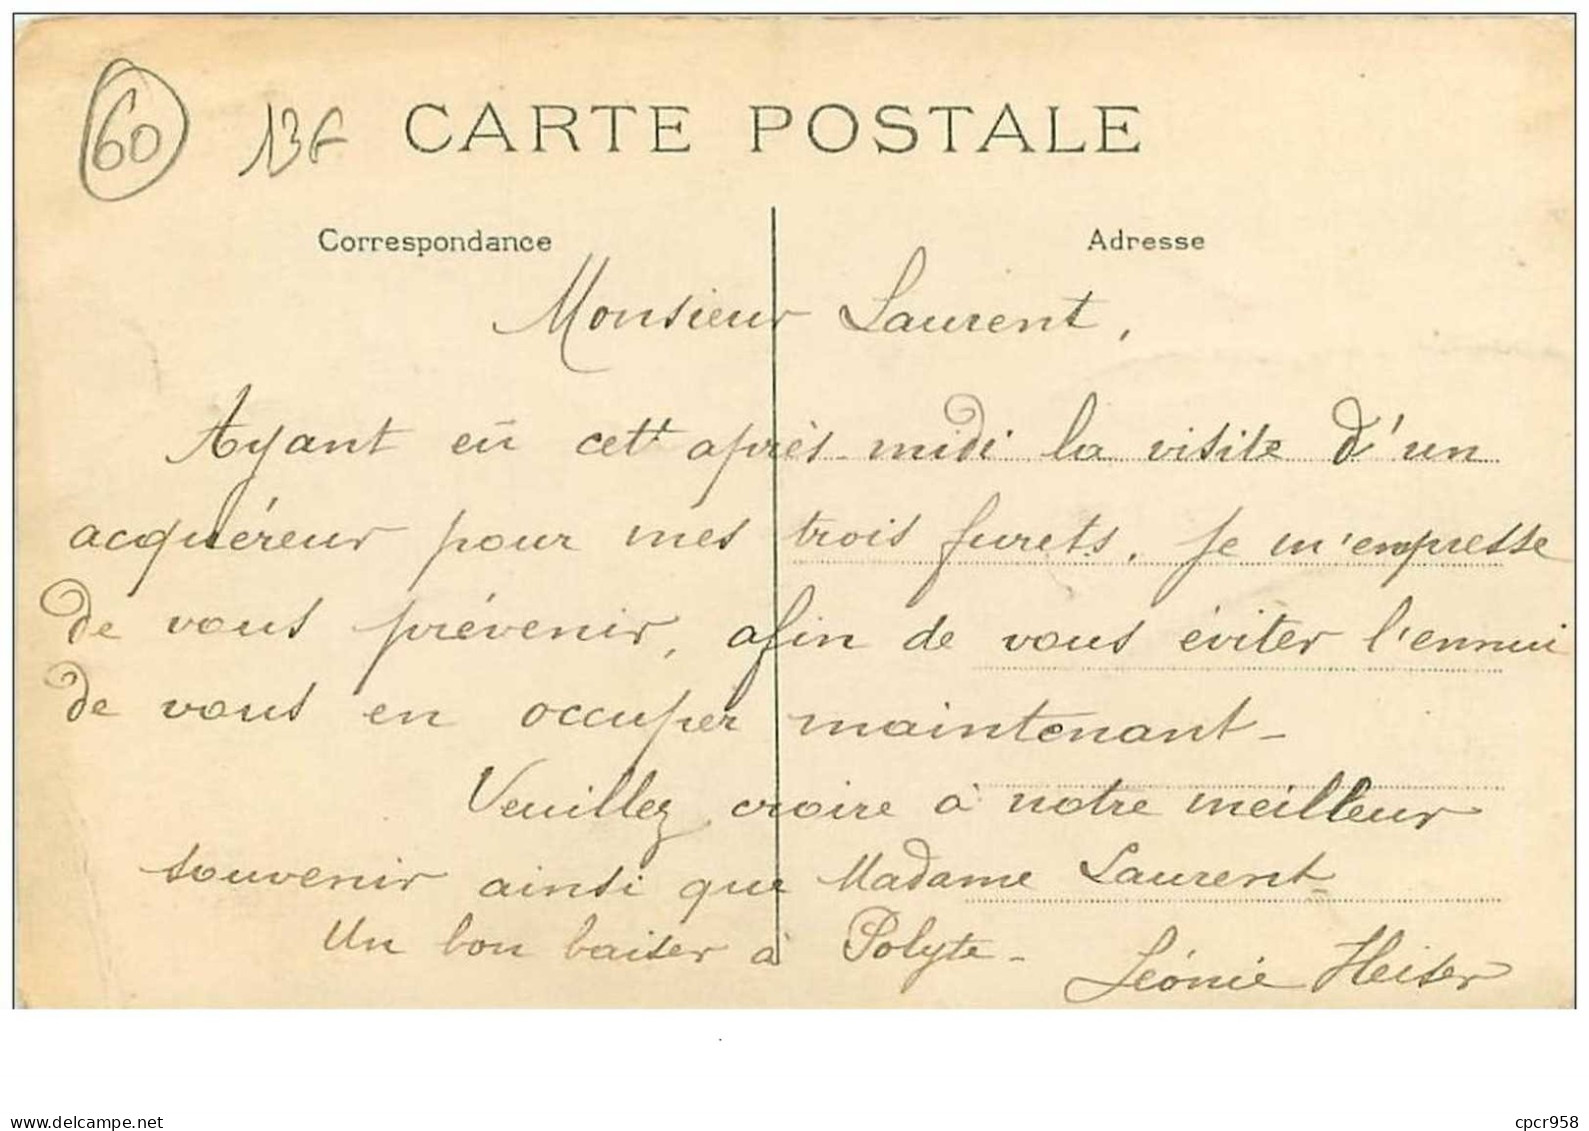 60 13F CARTE POSTALE
Correspondance Adresse
Monsieur Laurent,
Ayant eû cett après-midi la visite d'un
acquéreur pour mes trois furets, je m'empresse
de vous prévenir, afin de vous éviter l'ennui
de vous en occuper maintenant-
Veuillez croire à notre meilleur
souvenir ainsi que Madame Laurent
Un bon baiser à Polyte-
Léonie Heiser
www.delcampe.net cpcr958